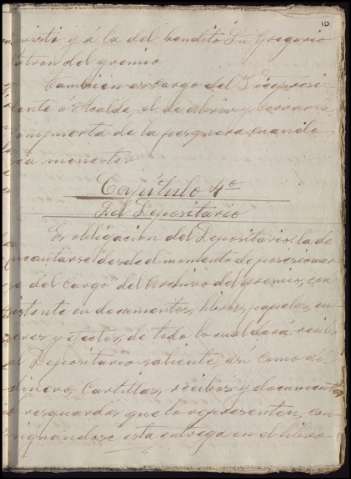 10
y á la del bendito Sn Gregorio
patrón del gremio
También es cargo del Vicepresi-
dente ó Alcalde, el de abrir y cerrar
la puerta de la pesquera cuando
sea menester
Capítulo 4º
Del Depositario
Es obligacion del Depositario, la de
incautarse desde el momento de posesionar
se del cargo del Archivo del gremio, con
sistente en documentos, libros, papeles, en
seres y efectos, de todo lo cual dará recibo
al Depositario saliente, asi como de
dinero, Cartillas, recibos y documentos
de resguardos que lo representen, con
signandose esta entrega en el libro